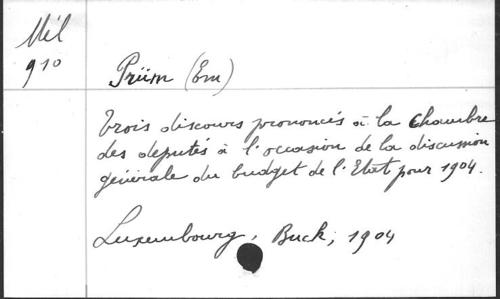 Mél
910
Prüm (Em)
Trois discours prononcés à la Chambre
des députés à l'occasion de la discussion
générale du budget de l'Etat pour 1904.
Luxembourg, Buck, 1904